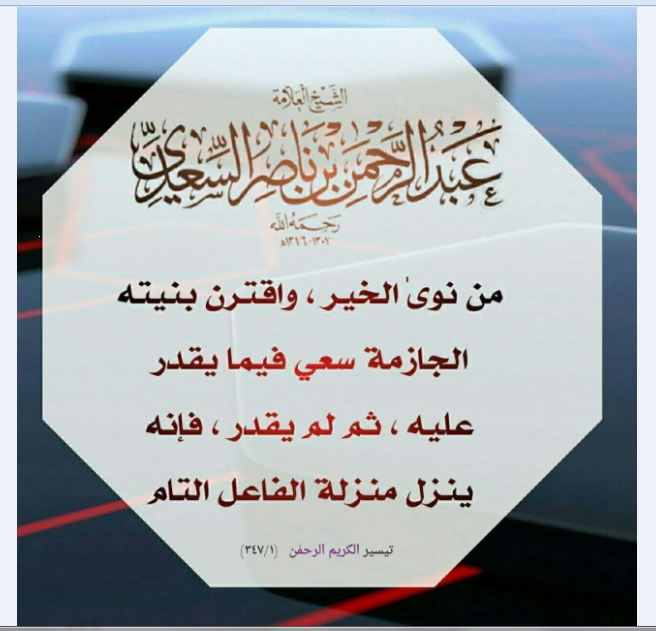 الشيخ العلامة
عبد الرحمن بن ناصر السعدي
رحمه الله
١٣٠٧-١٣٧٦هـ
من نوى الخير ، واقترن بنيته
الجازمة سعي فيما يقدر
عليه ، ثم لم يقدر ، فإنه
ينزل منزلة الفاعل التام
تيسير الكريم الرحمٰن (٣٤٧/١)